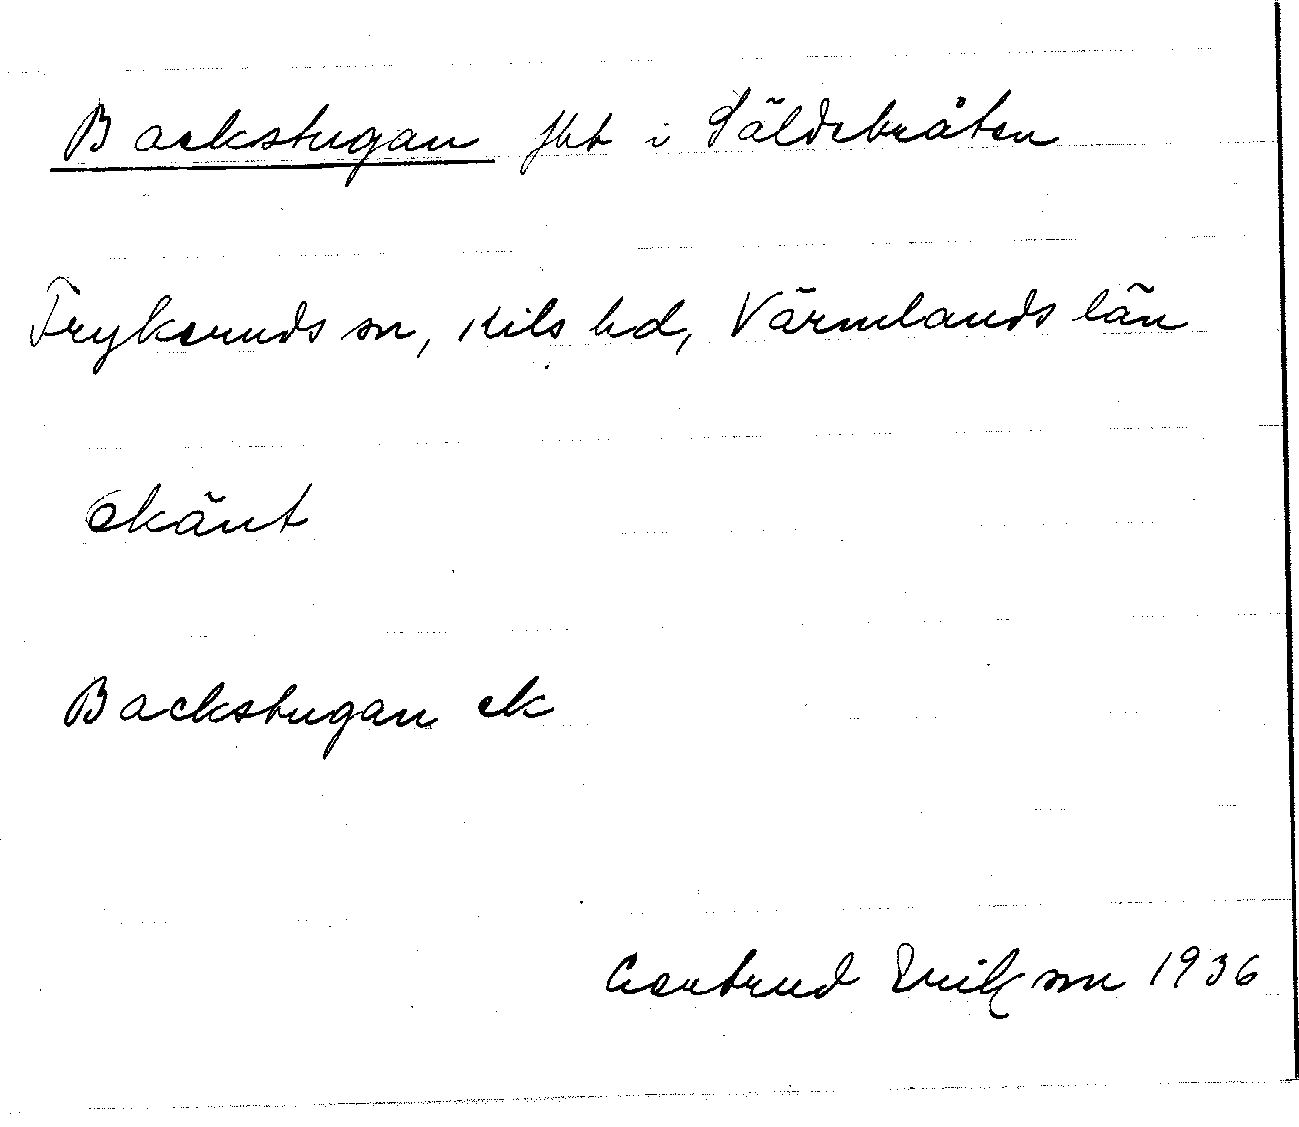 Backstugan fbt i Säldebråten
Frykeruds sn, Kils hd, Värmlands län
Okänt
Backstugan ek
Gertrud Erikson 1936